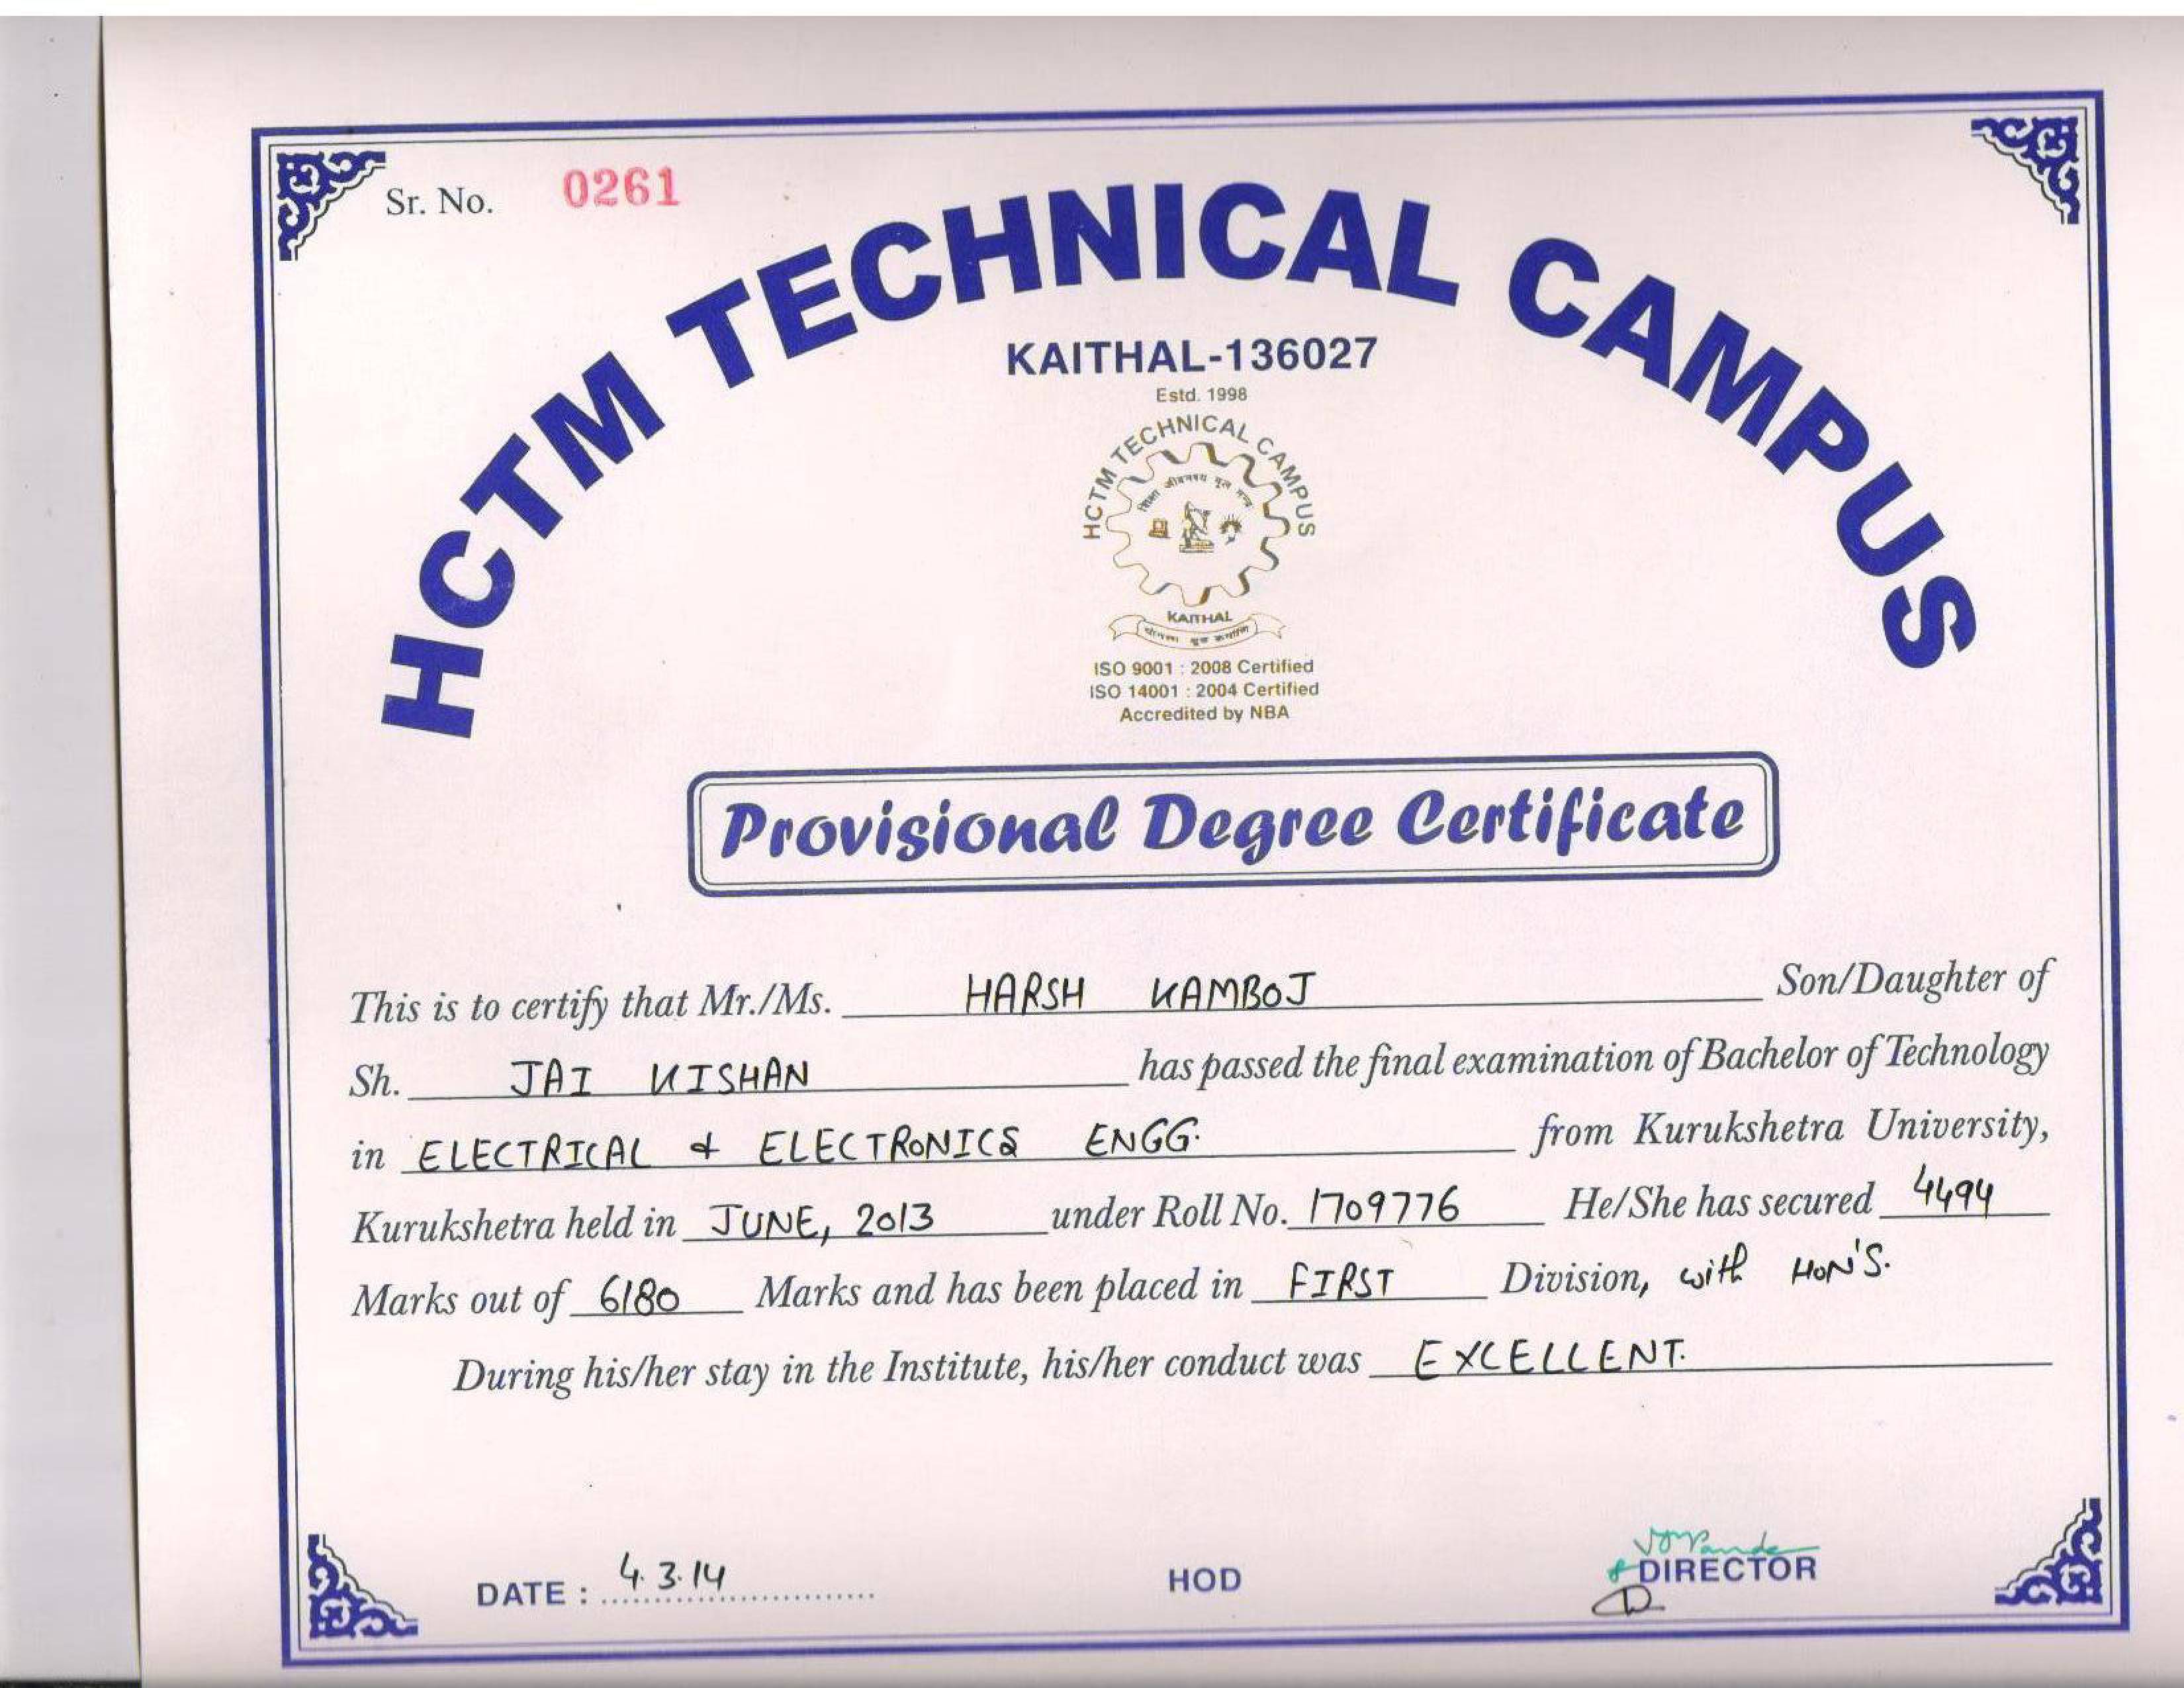 Sr. No. 0261
HCTM TECHNICAL CAMPUS
KAITHAL-136027
Estd. 1998
HCTM TECHNICAL CAMPUS
KAITHAL
ISO 9001 : 2008 Certified
ISO 14001 : 2004 Certified
Accredited by NBA
Provisional Degree Certificate
This is to certify that Mr./Ms. HARSH KAMBOJ Son/Daughter of
Sh. JAI KISHAN has passed the final examination of Bachelor of Technology
in ELECTRICAL & ELECTRONICS ENGG. from Kurukshetra University,
Kurukshetra held in JUNE, 2013 under Roll No. 1709776 He/She has secured 4494
Marks out of 6180 Marks and has been placed in FIRST Division, with HON'S.
During his/her stay in the Institute, his/her conduct was EXCELLENT.
DATE : 4.3.14 HOD DIRECTOR